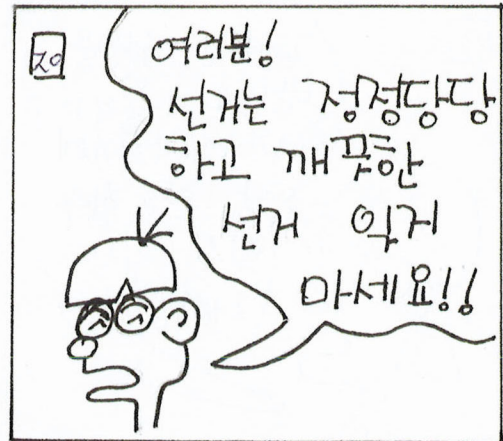 20
여러분!
선거는 정정당당
하고 깨끗한
선거 익거
마세요!!